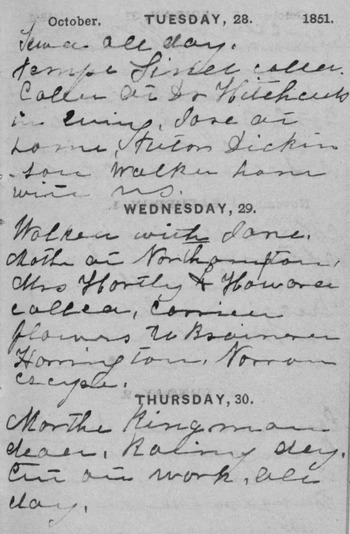 October. TUESDAY, 28. 1851.
Sewed all day.
Tempe Linel called.
Called at Dr Hitchcocks
in evning, Jane at
home Auton Dickin
son walked home
with us.
WEDNESDAY, 29.
Walked with Jane.
Mother at Northampton.
Mrs Hartly & Howard
called, Carried
flowers to Brainerd
Harrington. Narrow
escape.
THURSDAY, 30.
Martha Kingman
dead. Rainy day.
Cut out work, all
day.